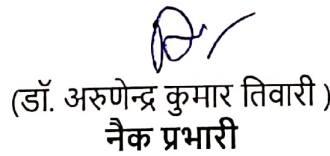 (डॉ. अरुणेन्द्र कुमार तिवारी )
नैक प्रभारी